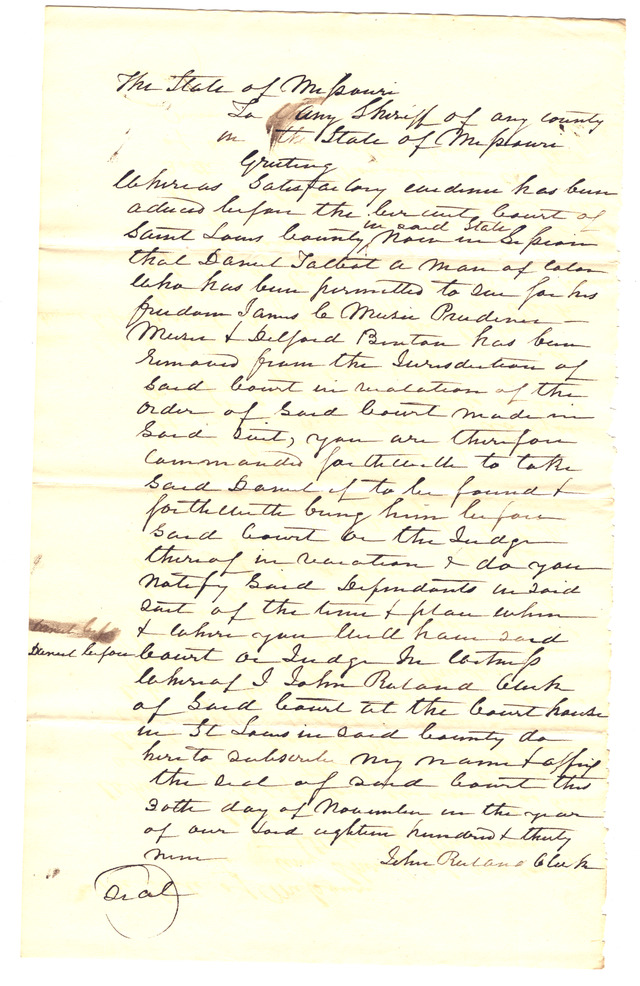 The State of Missouri
To any Sheriff of any county
in the State of Missouri
Greeting
Whereas Satisfactory evidence has been
aduced before the Circuit Court of
Saint Louis County in said State Now in Session
that Daniel Talbot a man of Color
Who has been permitted to sue for his
freedom James C Music Prudence
Music & Delford Benton has been
removed from the Jurisdiction of
Said Court in violation of the
order of Said Court made in
Said Suit, you are therefore
Commanded forthwith to take
Said Daniel if to be found &
forthwith bring him before
Said Court or the Judge
thereof in vacation & do you
Notify Said Defendants in said
Suit of the time & place when
& where you will have said
Daniel before Court or Judge In Witness
Whereof I John Ruland Clerk
of Said Court at the Court house
in St Louis in said County do
here to subscribe my name & affix
the seal of said Court this
30th day of November in the year
of our Lord eighteen hundred & thirty
nine John Ruland Clerk
Seal